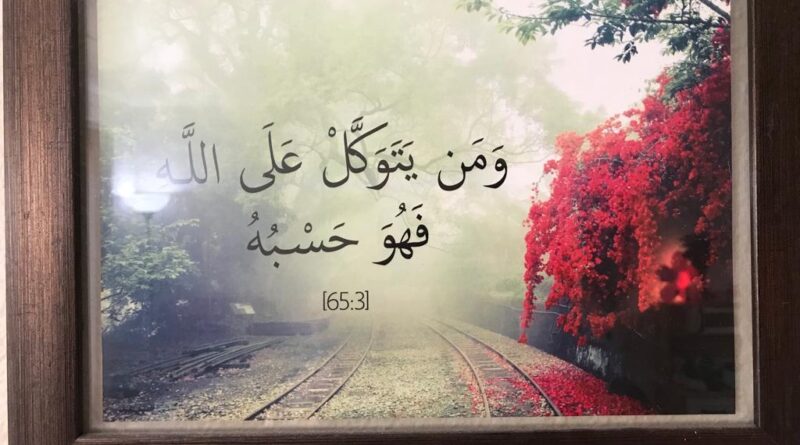 وَمَن يَتَوَكَّلْ عَلَى اللَّـه
فَهُوَ حَسْبُهُ
[65:3]